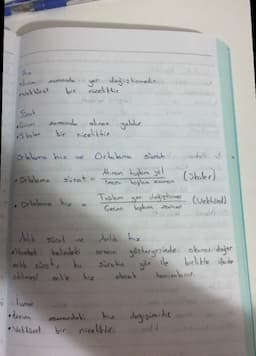 Hız
• Birim zamanda yer değiştirmedir.
• Vektörel bir niceliktir.
Sürat
• Birim zamanda alınan yoldur
• Skaler bir niceliktir.
Ortalama hız ve Ortalama sürat
• Ortalama sürat = Alınan toplam yol / Geçen toplam zaman (Skaler)
• Ortalama hız = Toplam yer değiştirme / Geçen toplam zaman (Vektörel)
Anlık sürat ve Anlık hız
• Hareket halindeki aracın göstergesinde okunan değer
anlık sürat bu süratin yön ile birlikte ifade
edilmesi anlık hız olarak tanımlanır.
İvme
• Birim zamandaki hız değişimidir
• Vektörel bir niceliktir.